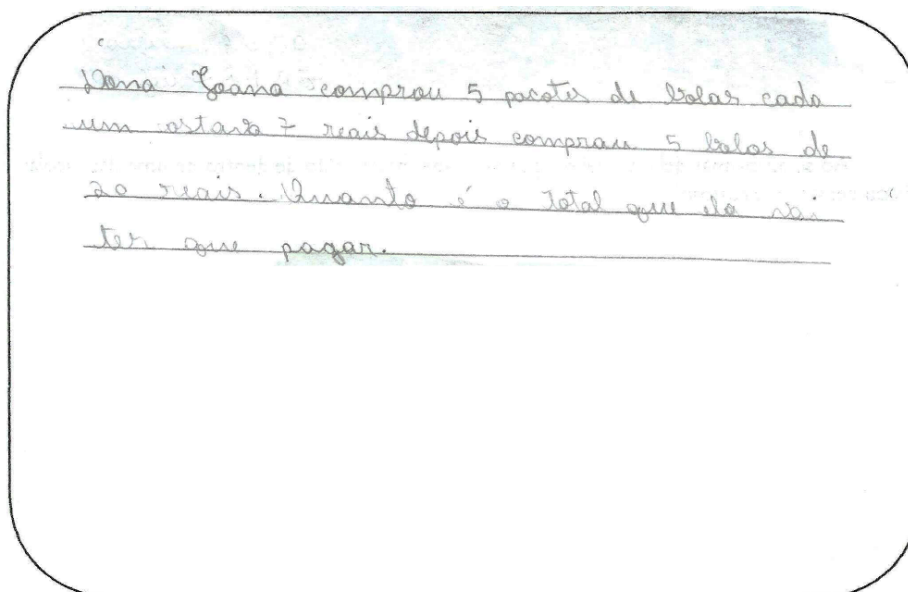 Dona Joana comprou 5 pacotes de bolas cada
um ostava 7 reais depois comprou 5 bolos de
20 reais. Quanto é o total que ela vai
ter que pagar.